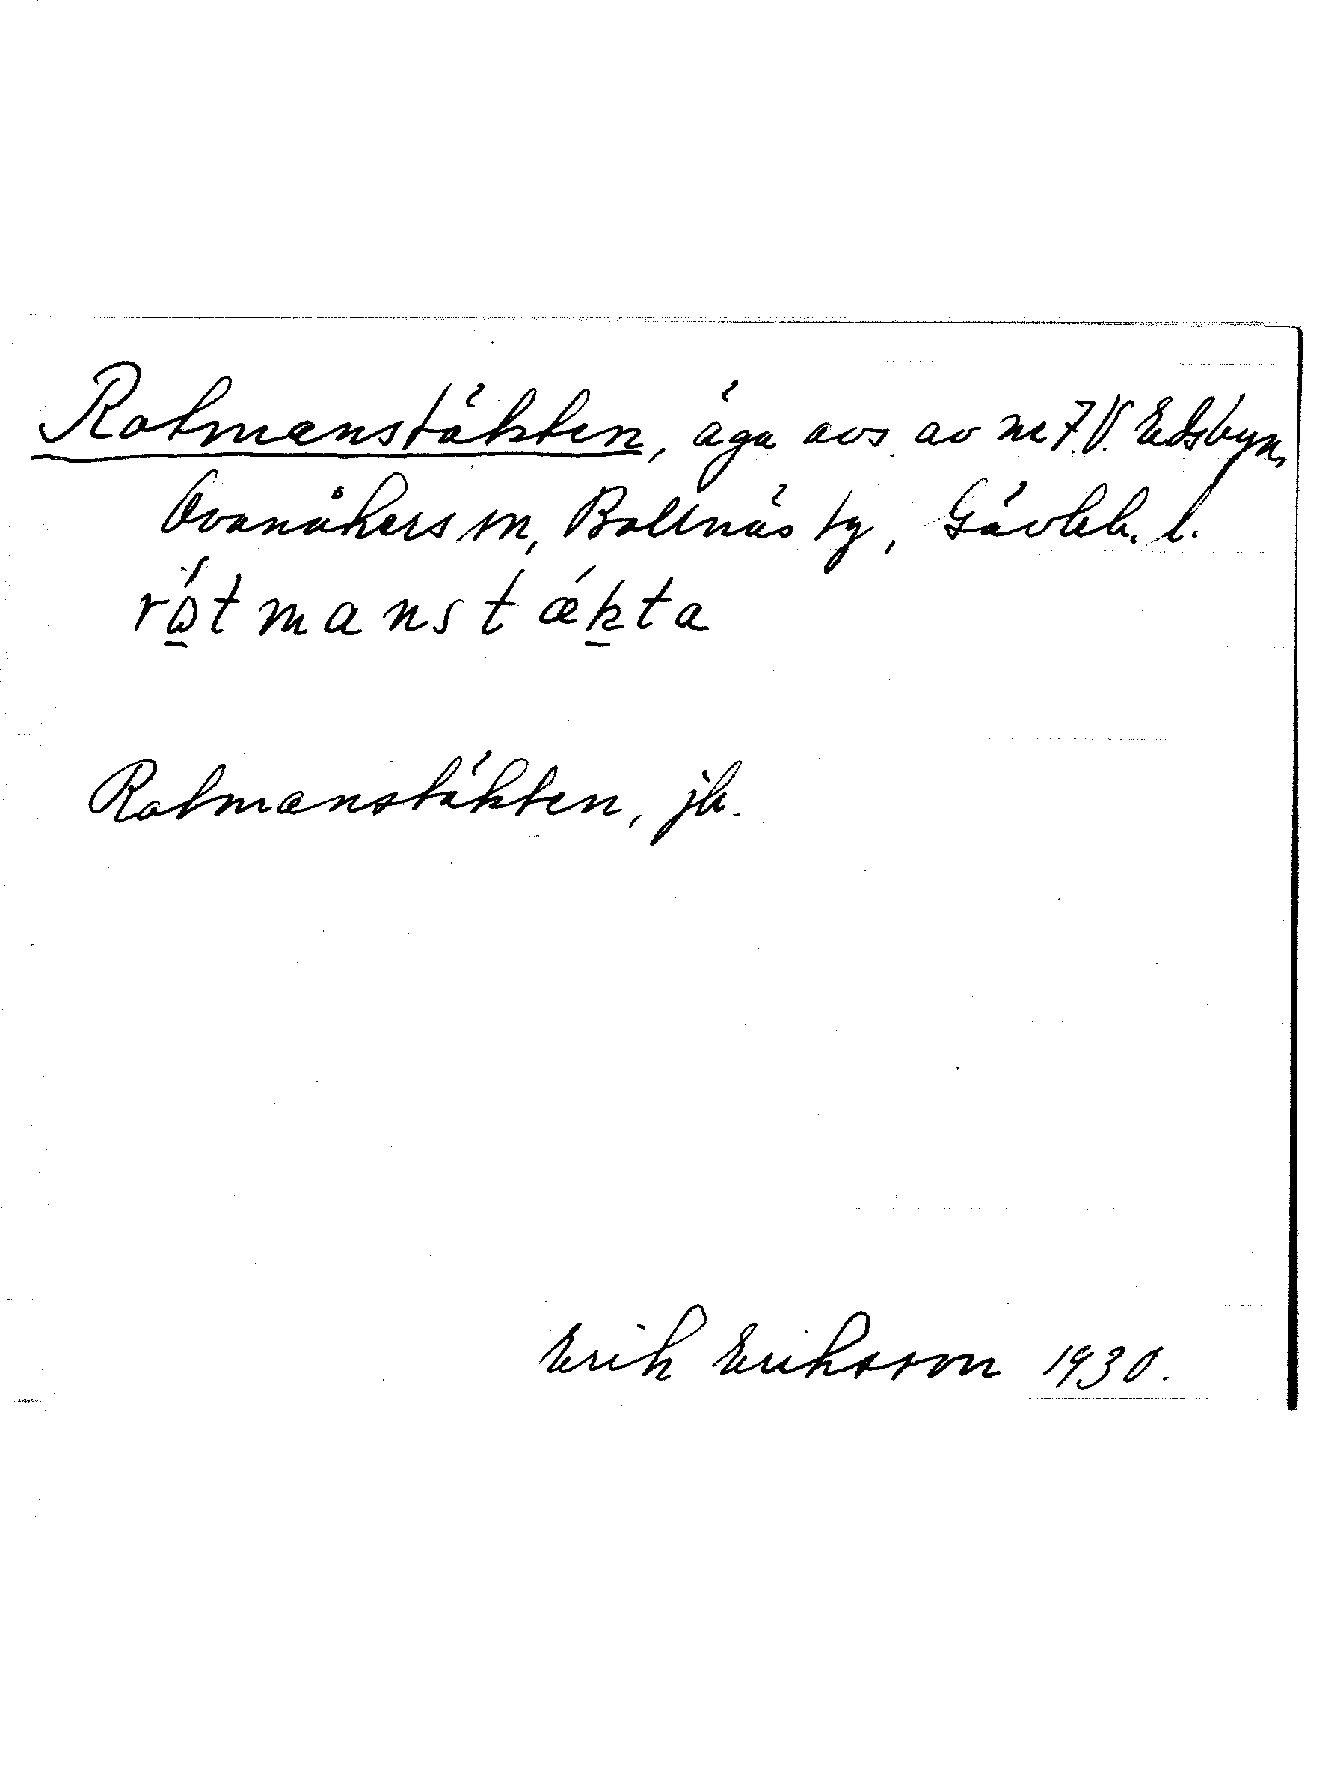 Rotmanstäkten, äga avs. av nr 7. V. Edsbyn,
Ovanåkers sn, Bollnäs tg, Gävleb. l.
rǻtmanstǽkta
Rotmanstäkten, jb.
Erik Eriksson 1930.